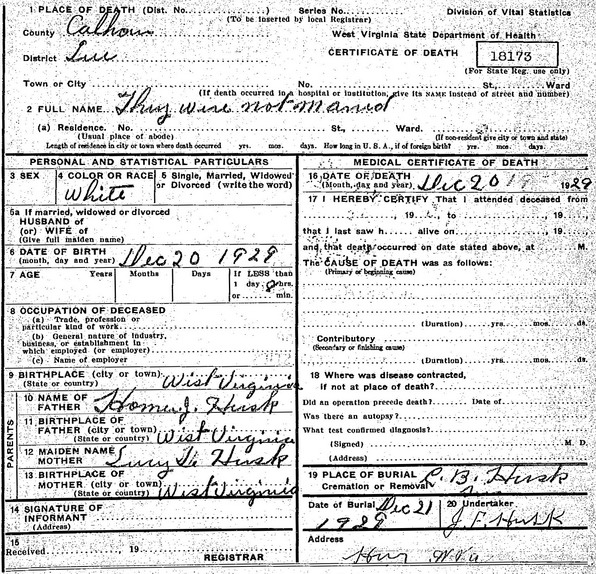 1 PLACE OF DEATH (Dist. No. Series No. Division of Vital Statistics
(To be inserted by local Registrar)
County Calhoun West Virginia State Department of Health
District Lee CERTIFICATE OF DEATH 18173
(For State Reg. use only)
Town or City No. St., Ward
(If death occurred in a hospital or institution, give its NAME instead of street and number)
2 FULL NAME They wire not Named
(a) Residence. No. St., Ward.
(Usual place of abode) (If non-resident give city or town and state)
Length of residence in city or town where death occurred yrs. mos. days. How long in U. S. A., if of foreign birth? yrs. mos. days.
PERSONAL AND STATISTICAL PARTICULARS
3 SEX 4 COLOR OR RACE 5 Single, Married, Widowed
or Divorced (write the word)
White
5a If married, widowed or divorced
HUSBAND of
(or) WIFE of
(Give full maiden name)
6 DATE OF BIRTH
(month, day and year) Dec 20 1929
7 AGE Years Months Days If LESS than
1 day, hrs.
or min.
8 OCCUPATION OF DECEASED
(a) Trade, profession or
particular kind of work
(b) General nature of industry,
business, or establishment in
which employed (or employer)
(c) Name of employer
9 BIRTHPLACE (city or town)
(State or country) West Virginia
PARENTS
10 NAME OF
FATHER Homer J. Husk
11 BIRTHPLACE OF
FATHER (city or town)
(State or country) West Virginia
12 MAIDEN NAME
MOTHER Lucy Husk
13 BIRTHPLACE OF
MOTHER (city or town)
(State or country) West Virginia
14 SIGNATURE OF
INFORMANT
(Address)
15
Received , 19
REGISTRAR
MEDICAL CERTIFICATE OF DEATH
16 DATE OF DEATH
(Month, day and year) Dec 20 1929
17 I HEREBY CERTIFY That I attended deceased from
, 19 , to , 19
that I last saw h alive on , 19
and that death occurred on date stated above, at M.
The CAUSE OF DEATH was as follows:
(Primary or beginning cause)
(Duration) yrs. mos. ds.
Contributory
(Secondary or finishing cause)
(Duration) yrs. mos. ds.
18 Where was disease contracted,
if not at place of death?
Did an operation precede death? Date of
Was there an autopsy?
What test confirmed diagnosis?
(Signed) M. D.
(Address)
19 PLACE OF BURIAL
Cremation or Removal L. B. Husk
Date of Burial Dec 21
1929
20 Undertaker
J. F. Husk
Address
W. Va